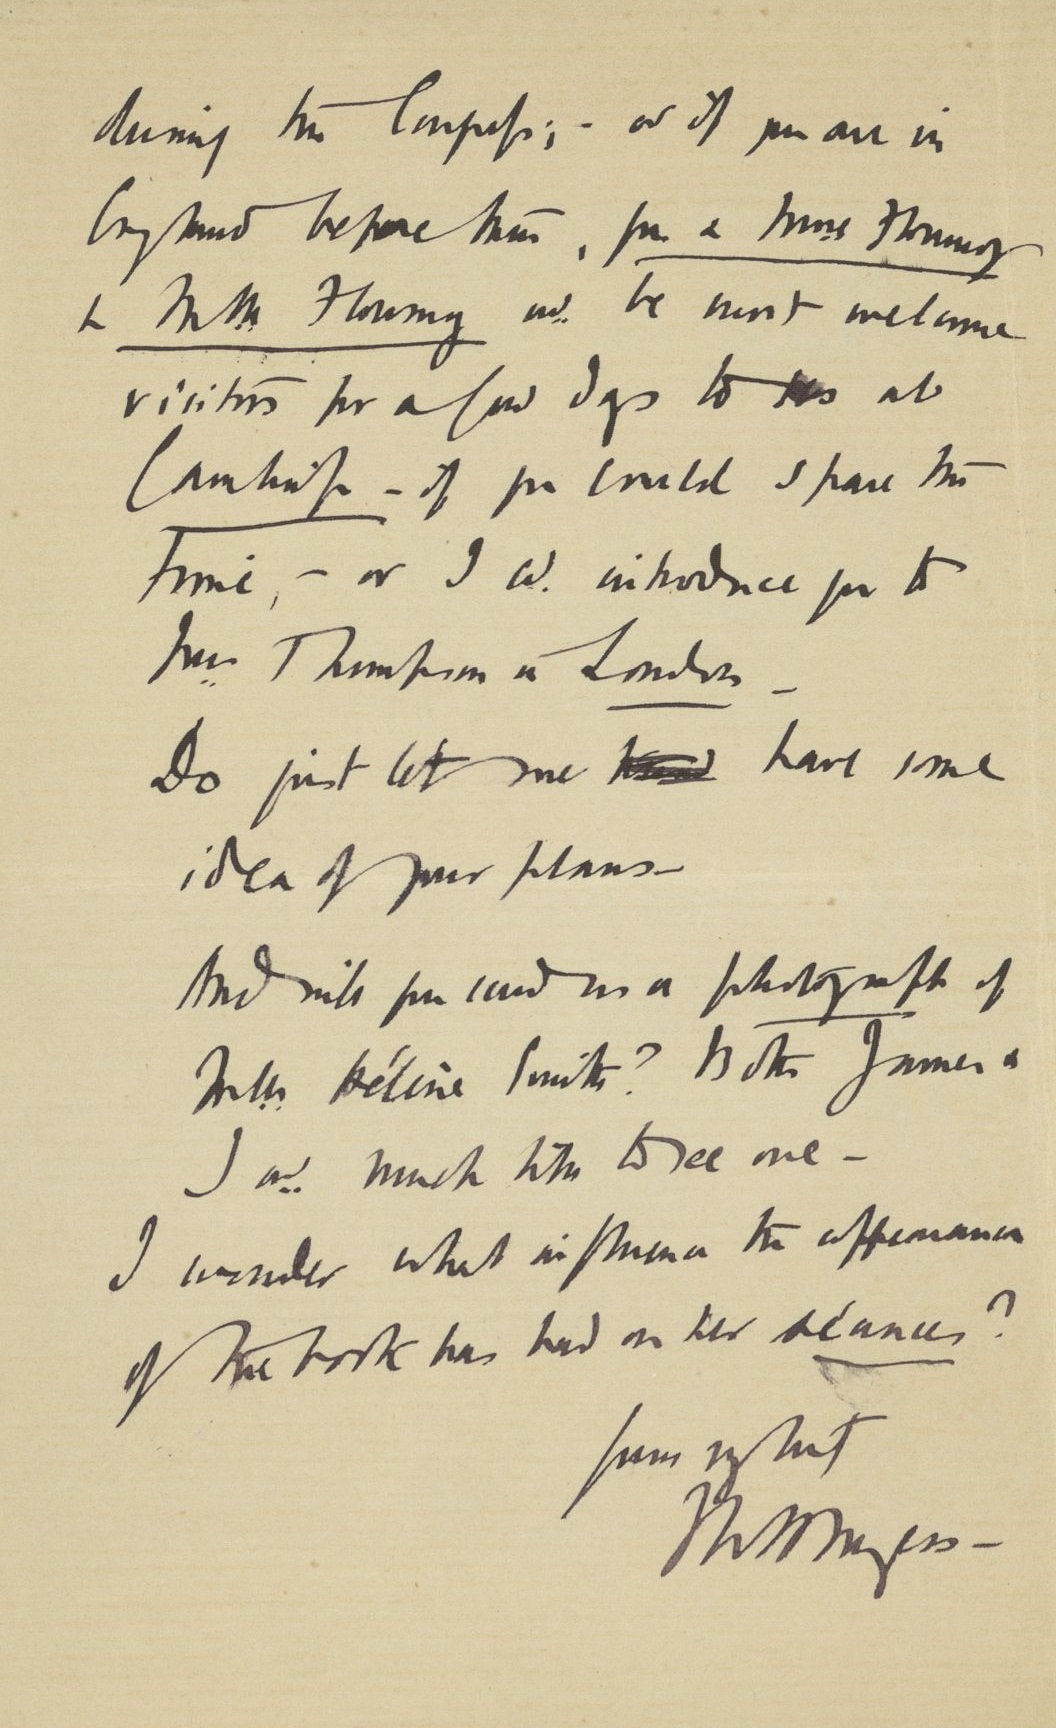 during the Congress; - or if you are in
England before then, you & Mme Flournoy
& Mlle Flournoy wd. be most welcome
visitors for a few days to us at
Cambridge - if you could spare the
time, - or I cd. introduce you to
Mrs Thompson in London -
Do just let me have some
idea of your plans -
And will you send us a photograph of
Mlle. Hélène Smith? Both James &
I wd. much like to see one -
I wonder what influence the appearance
of the book has had on her séances?
Yours ever
F W H Myers -